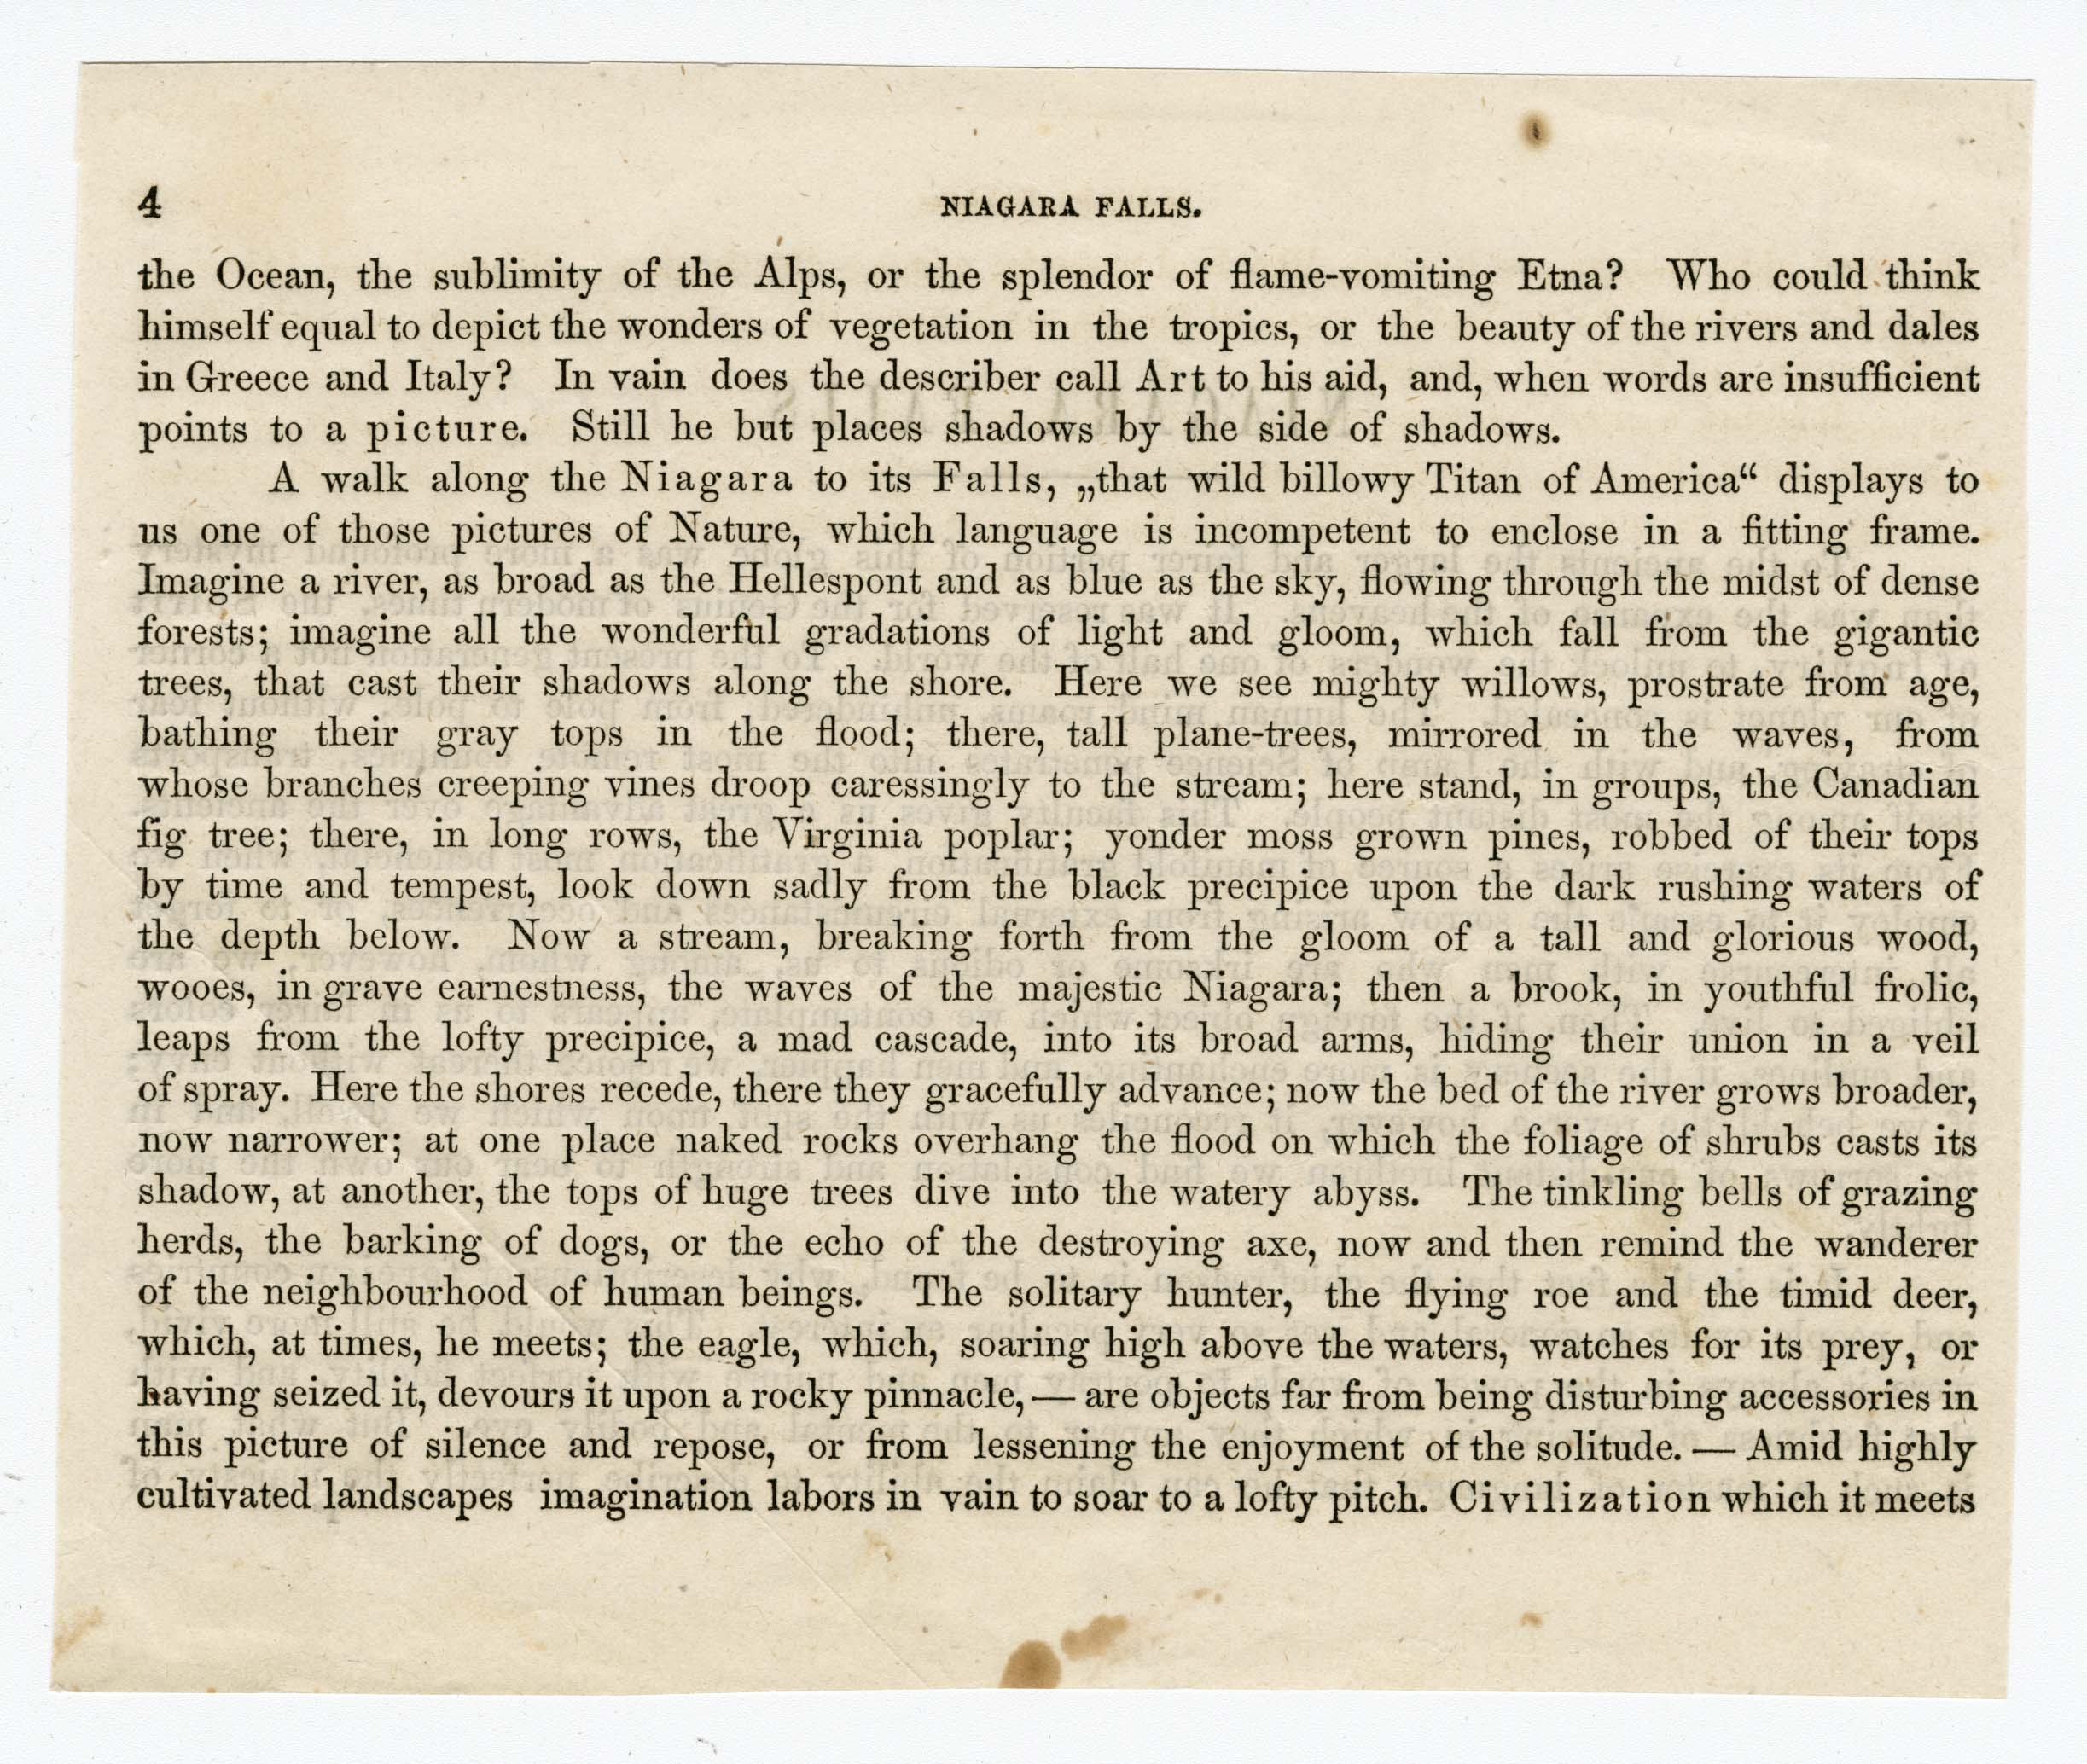 4 NIAGARA FALLS.
the Ocean, the sublimity of the Alps, or the splendor of flame-vomiting Etna? Who could think
himself equal to depict the wonders of vegetation in the tropics, or the beauty of the rivers and dales
in Greece and Italy? In vain does the describer call Art to his aid, and, when words are insufficient
points to a picture. Still he but places shadows by the side of shadows.
A walk along the Niagara to its Falls, „that wild billowy Titan of America“ displays to
us one of those pictures of Nature, which language is incompetent to enclose in a fitting frame.
Imagine a river, as broad as the Hellespont and as blue as the sky, flowing through the midst of dense
forests; imagine all the wonderful gradations of light and gloom, which fall from the gigantic
trees, that cast their shadows along the shore. Here we see mighty willows, prostrate from age,
bathing their gray tops in the flood; there, tall plane-trees, mirrored in the waves, from
whose branches creeping vines droop caressingly to the stream; here stand, in groups, the Canadian
fig tree; there, in long rows, the Virginia poplar; yonder moss grown pines, robbed of their tops
by time and tempest, look down sadly from the black precipice upon the dark rushing waters of
the depth below. Now a stream, breaking forth from the gloom of a tall and glorious wood,
wooes, in grave earnestness, the waves of the majestic Niagara; then a brook, in youthful frolic,
leaps from the lofty precipice, a mad cascade, into its broad arms, hiding their union in a veil
of spray. Here the shores recede, there they gracefully advance; now the bed of the river grows broader,
now narrower; at one place naked rocks overhang the flood on which the foliage of shrubs casts its
shadow, at another, the tops of huge trees dive into the watery abyss. The tinkling bells of grazing
herds, the barking of dogs, or the echo of the destroying axe, now and then remind the wanderer
of the neighbourhood of human beings. The solitary hunter, the flying roe and the timid deer,
which, at times, he meets; the eagle, which, soaring high above the waters, watches for its prey, or
having seized it, devours it upon a rocky pinnacle, — are objects far from being disturbing accessories in
this picture of silence and repose, or from lessening the enjoyment of the solitude. — Amid highly
cultivated landscapes imagination labors in vain to soar to a lofty pitch. Civilization which it meets